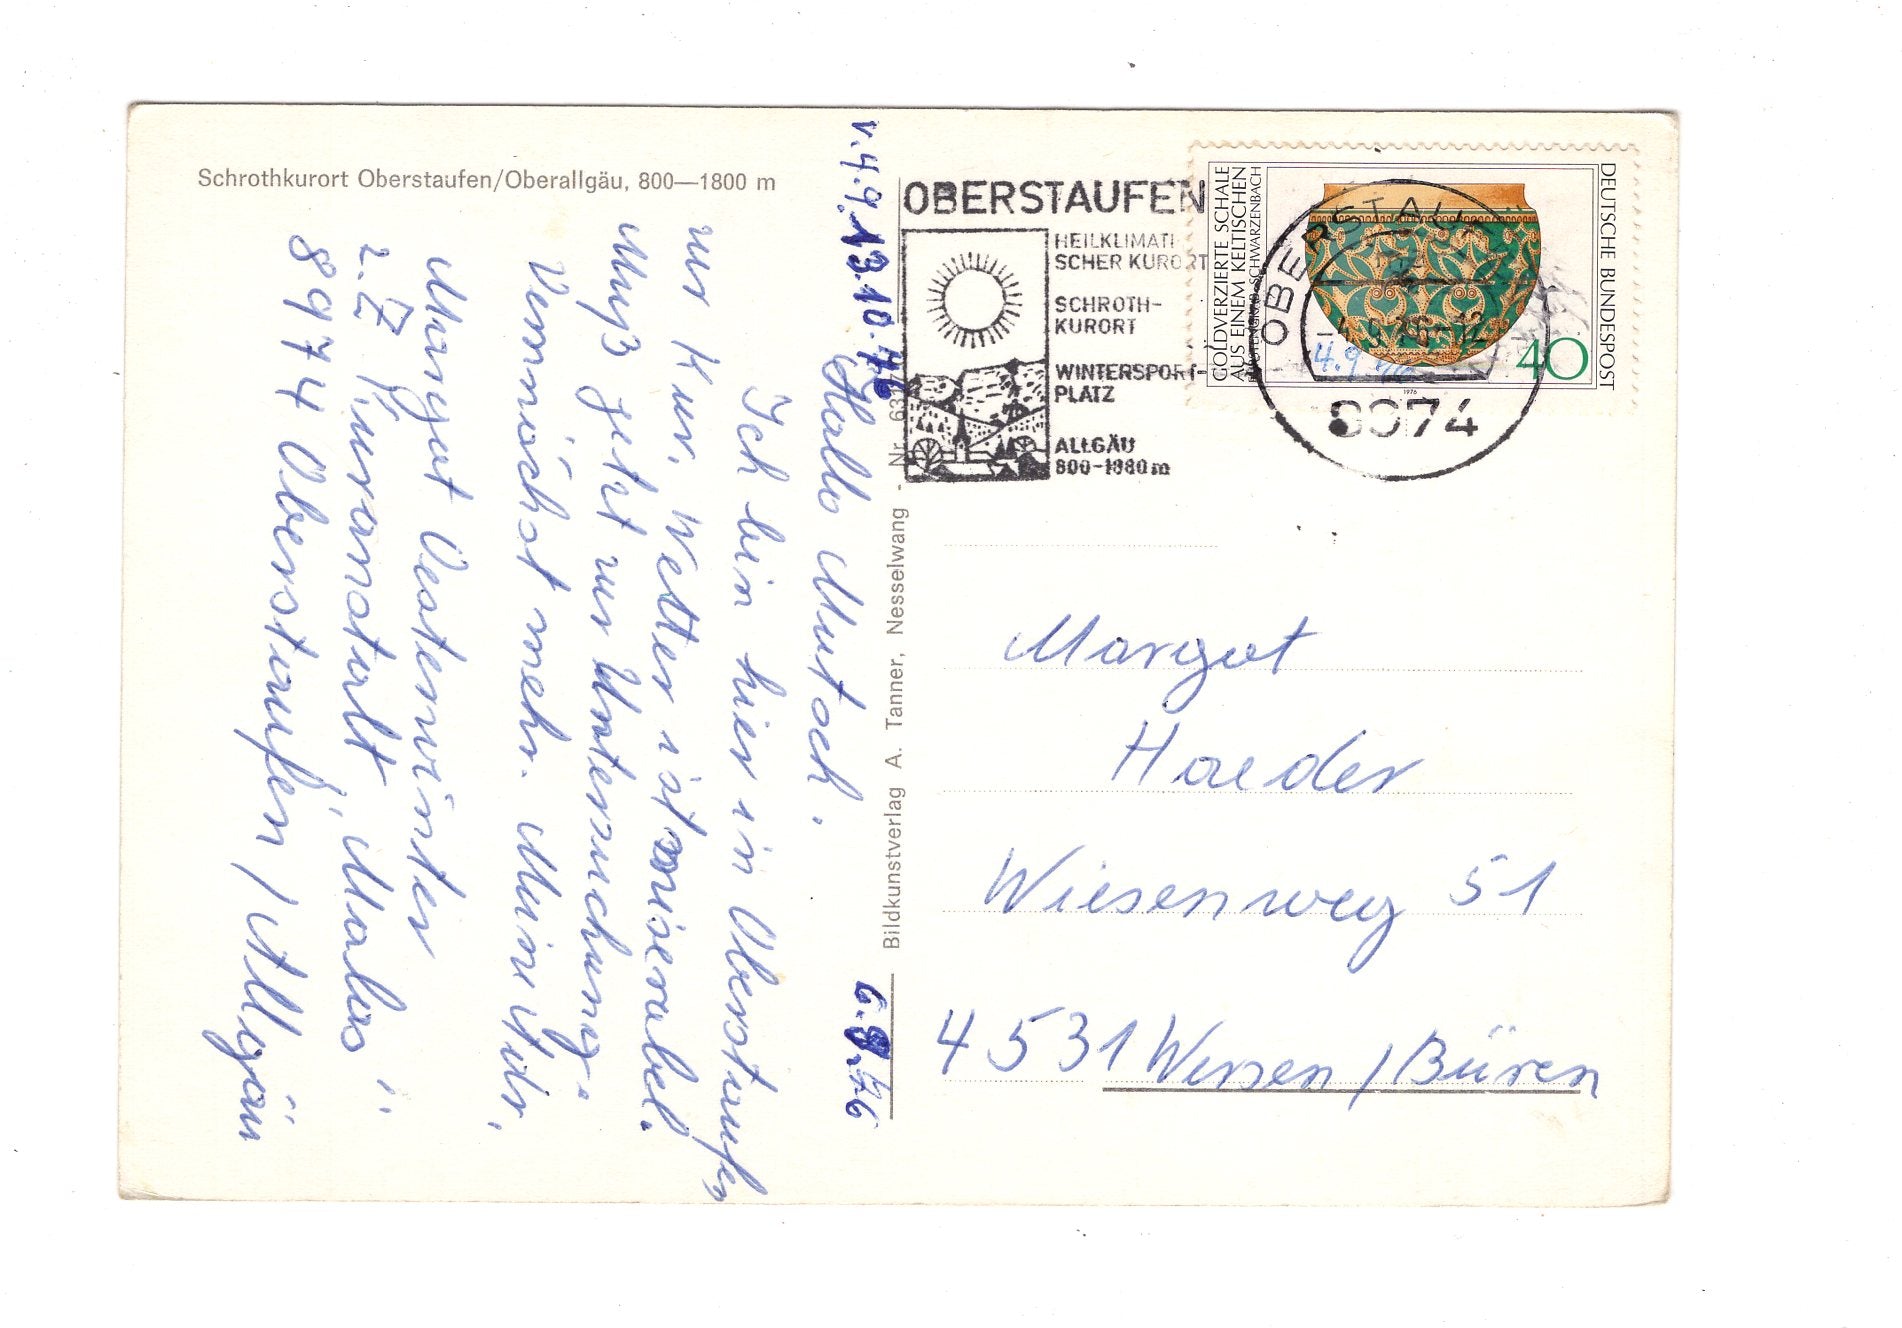 Schrothkurort Oberstaufen/Oberallgäu, 800—1800 m
v. 4.9. 13.10.76
Hallo Mutsch.
Ich bin hier in Oberstaufen
zur Kur, Wetter ist miserabel.
Muß jetzt zur Untersuchung.
Demnächst mehr. Meine Adr.
Margot Oesterwinter
z.Z. Kuranstalt, Malas i.
8974 Oberstaufen / Allgäu
6.9.76
Bildkunstverlag A. Tanner, Nesselwang - Nr.
OBERSTAUFEN
HEILKLIMATI-
SCHER KURORT
SCHROTH-
KURORT
WINTERSPORT-
PLATZ
ALLGÄU
800-1880 m
GOLDVERZIERTE SCHALE
AUS EINEM KELTISCHEN
FÜRSTENGRAB · SCHWARZENBACH
DEUTSCHE BUNDESPOST
40
1976
OBERSTAUFEN
-4.9.76-12
4.9.76
8974
Margot
Haeder
Wiesenweg 51
4531 Wersen / Büren